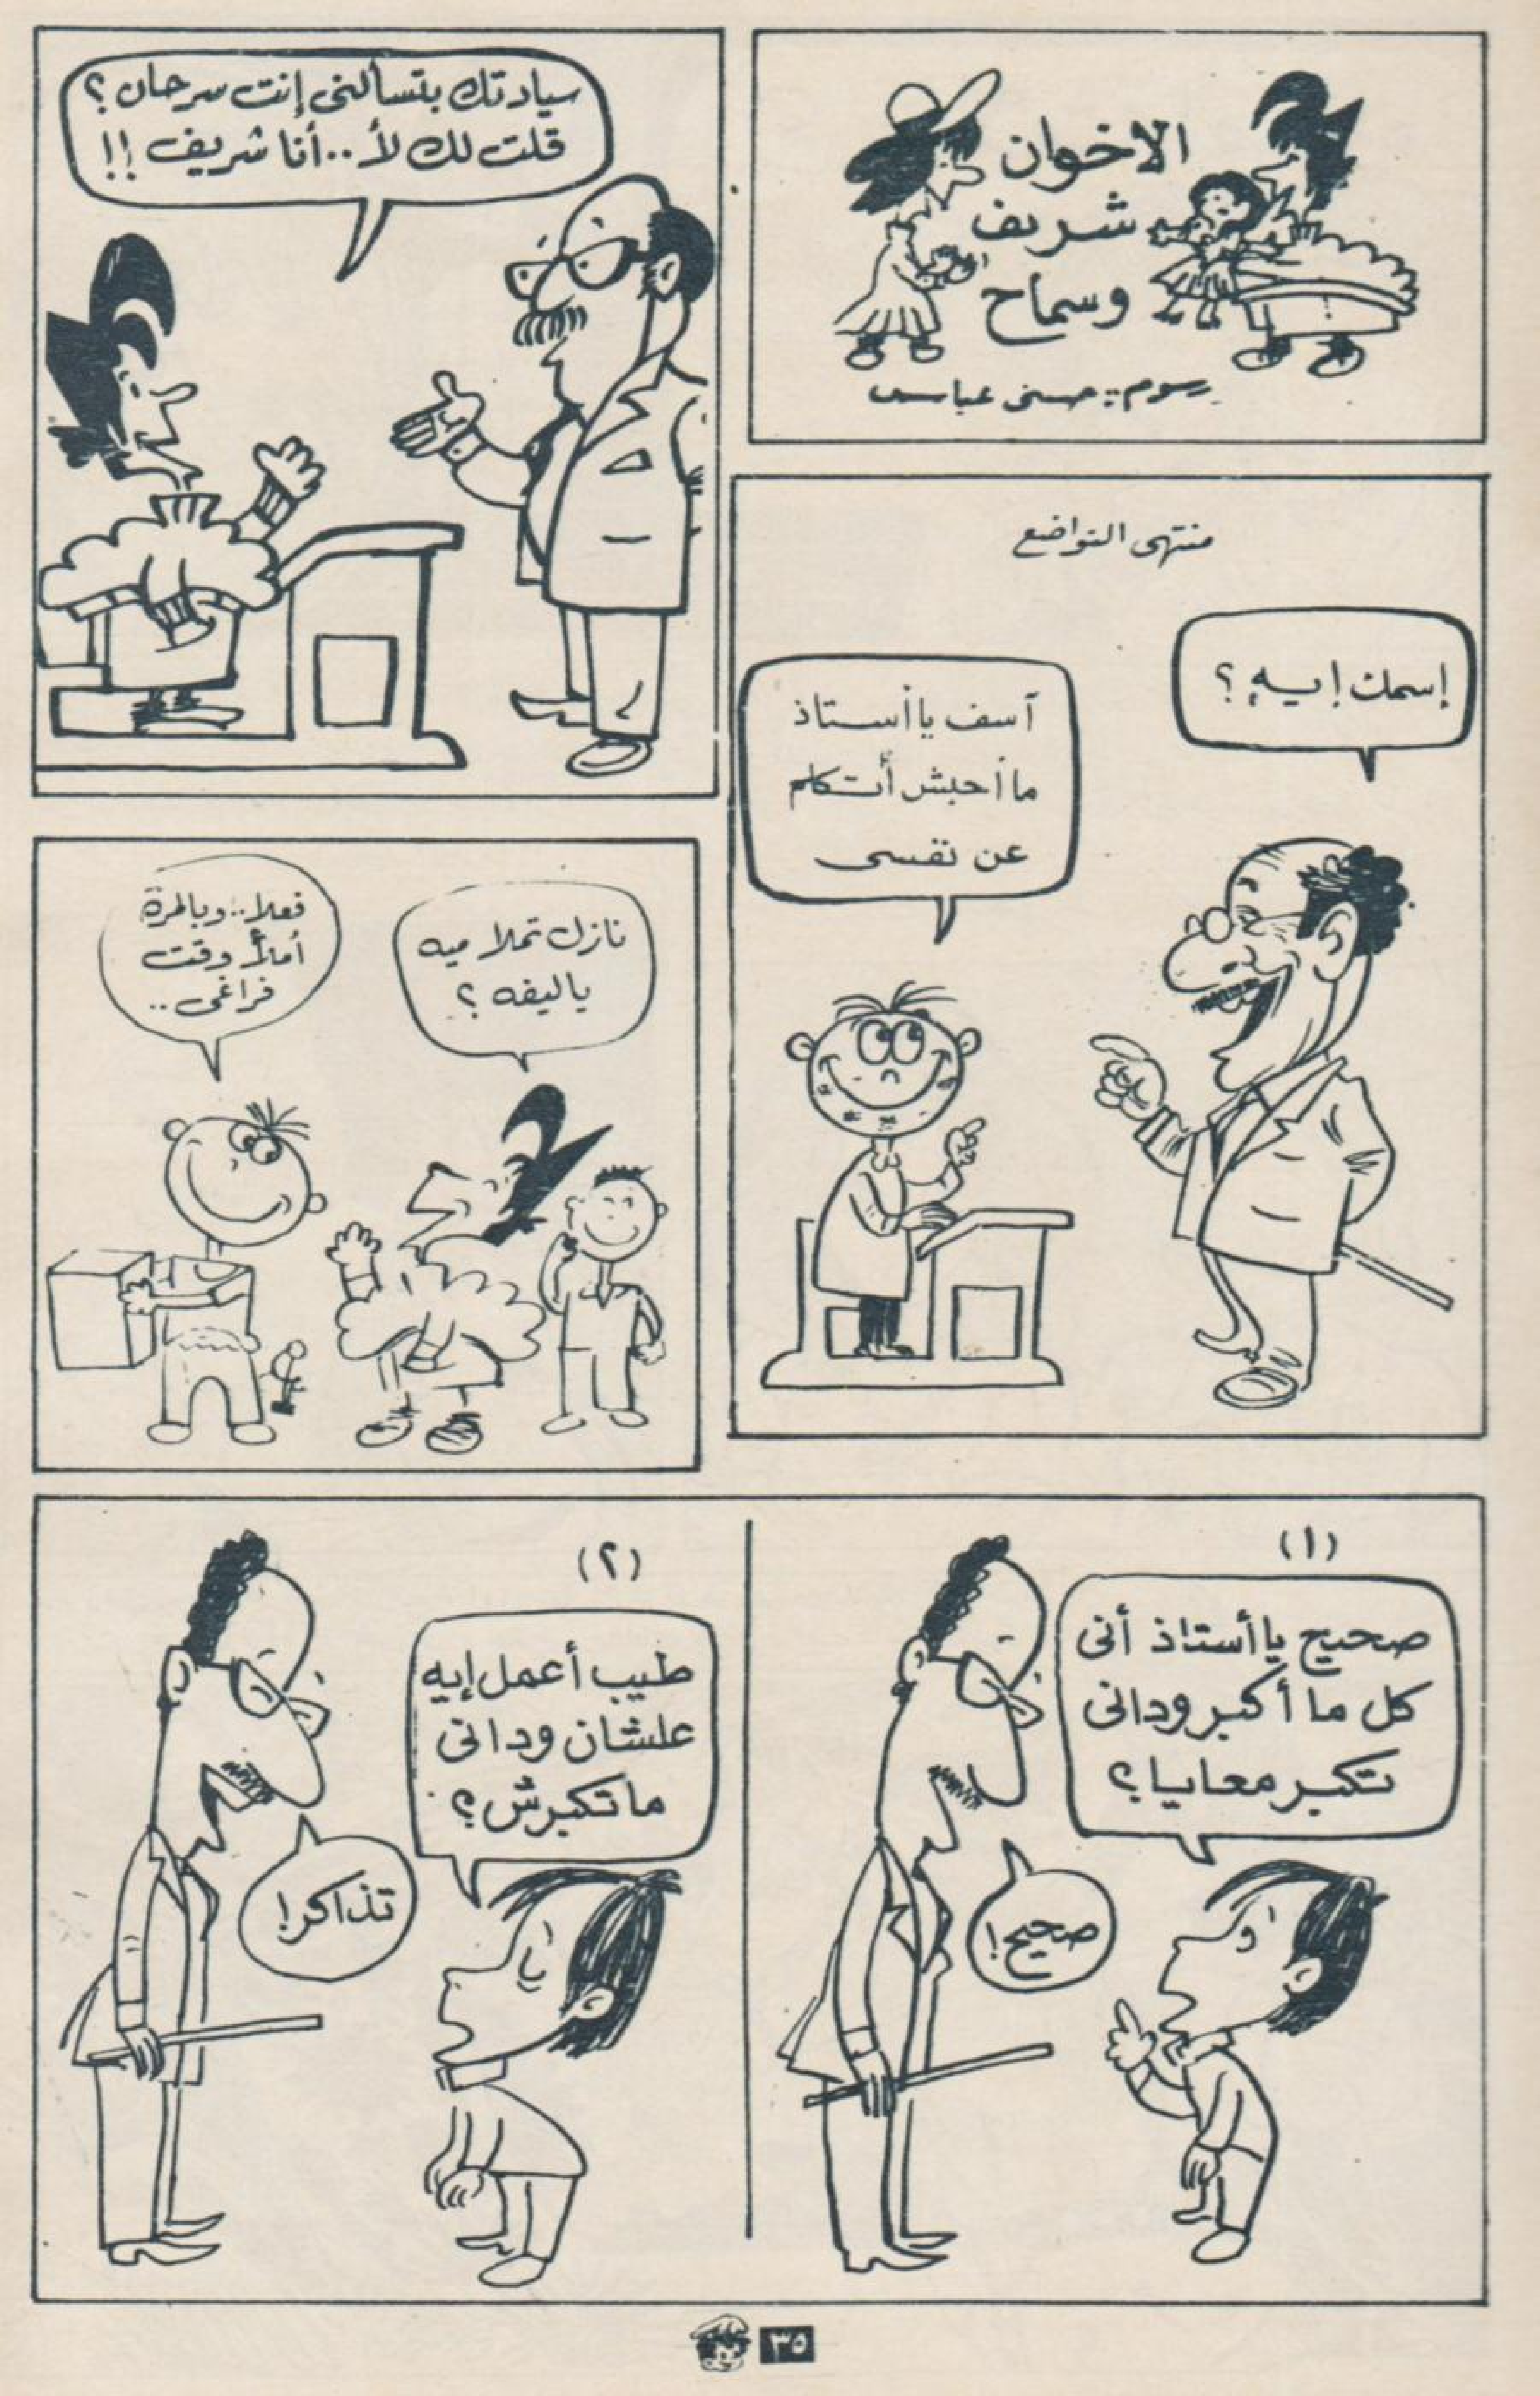 الاخوان
شريف
وسماح
رسوم: حسنى عباس
سيادتك بتسألنى إنت سرحان؟
قلت لك لأ.. أنا شريف!!
منتهى التواضع
إسمك إيه؟
آسف يا أستاذ
ما أحبش أتكلم
عن نفسى
نازل تملا ميه
يا ليفه؟
فعلا.. وبالمرة
أملأ وقت
فراغى..
(١)
صحيح يا أستاذ أنى
كل ما أكبر ودانى
تكبر معايا؟
صحيح!
(٢)
طيب أعمل إيه
علشان ودانى
ما تكبرش؟
تذاكر!
٣٥